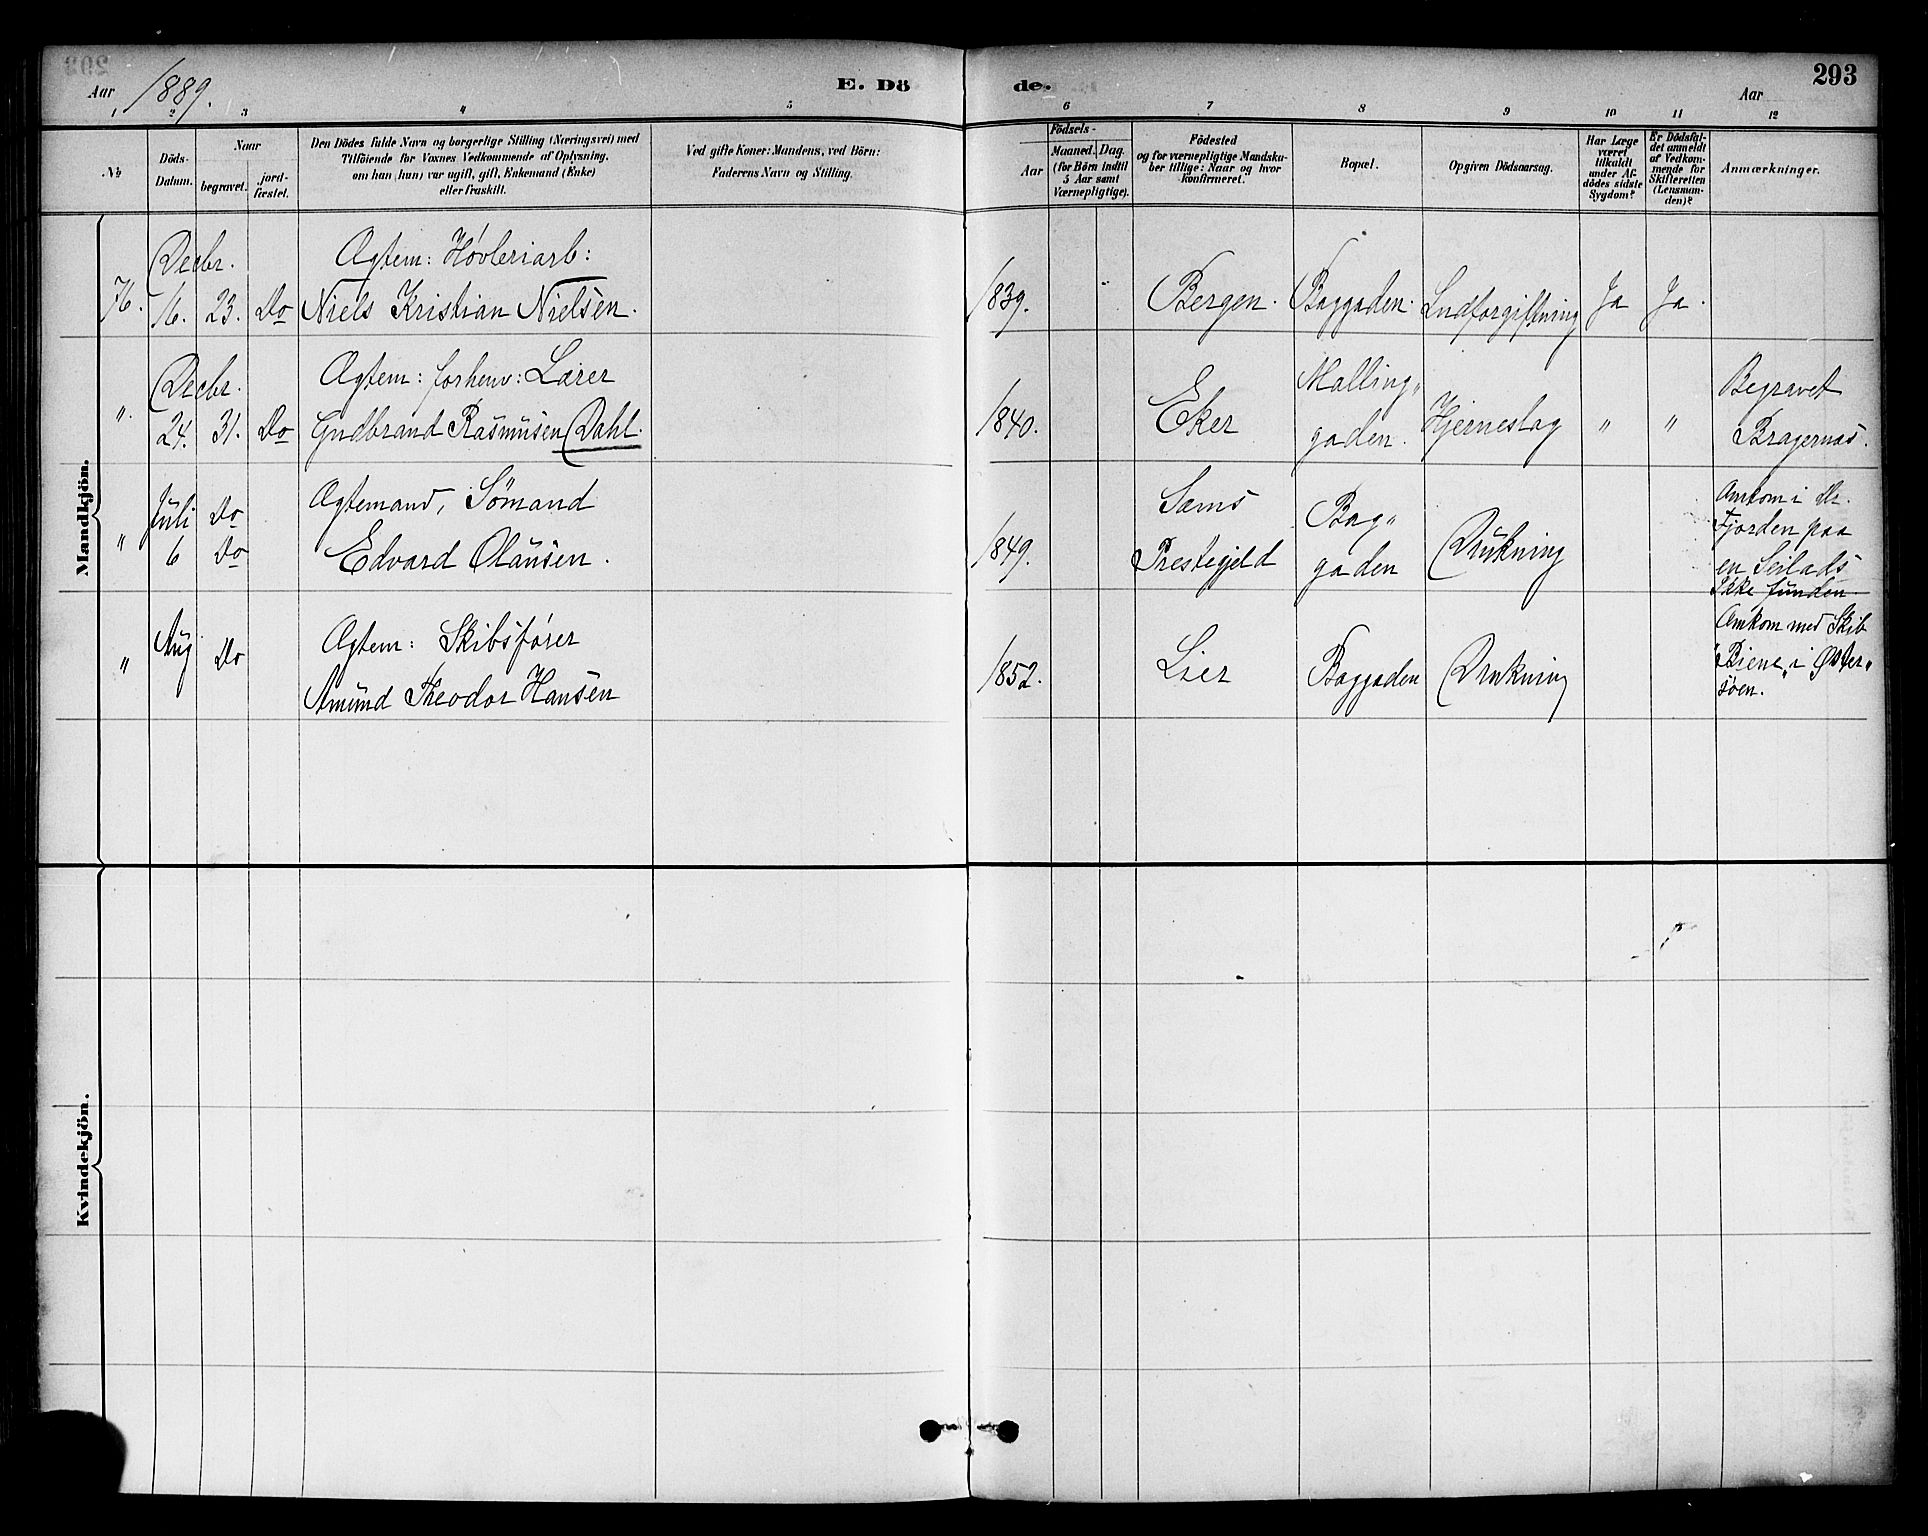 293
Aar 1889. E. Dö de. Aar
1 2 3 4 5 6 7 8 9 10 11 12
№
Döds-
Datum.
Naar
begravet.
jord-
fæstet.
Den Dödes fulde Navn og borgerlige Stilling (Næringsvei) med
Tilföiende for Voxnes Vedkommende af Oplysning,
om han (hun) var ugift, gift, Enkemand (Enke)
eller fraskilt.
Ved gifte Koner: Mandens, ved Börn:
Faderens Navn og Stilling.
Födsels-
Aar
Maaned. Dag.
(for Børn indtil
5 Aar samt
Værnepligtige).
Födested
og for værnepligtige Mandska-
ber tillige: Naar og hvor
konfirmeret.
Bopæl.
Opgiven Dödsaarsag.
Har Læge
været
tilkaldt
under Af-
dödes sidste
Sygdom?
Er Dödsfal-
det anmeldt
af Vedkom-
mende for
Skifteretten
(Lensman-
den)?
Anmærkninger.
Mandkjön.
Decbr. Ægtem: Høvleriarb:
76. 16. 23. Do Niels Kristian Nielsen. 1839. " Bergen. Baggaden. Lndforgiftning Ja Ja.
Decbr. Ægtem: forhenv: Lærer Malling„ Begravet
". 24. 31. Do Gudbrand Rasmusen Dahl. 1840. Eker gaden. Hjerneslag " " Bragernæs.
Juli Do Ægtemand, Sömand Sems Bag„ Omkom i Dr.
" 6 Do Edvard Olausen. 1849. Prestegjeld gaden Drukning Fjorden paa
en Seilads
Ikke funden
Aug Do Ægtem: Skibsfører Omkom med Skib
" Amund Theodor Hansen 1852. Lier Baggaden Drukning „Biene„ i Øster„
söen.
Kvindekjön.